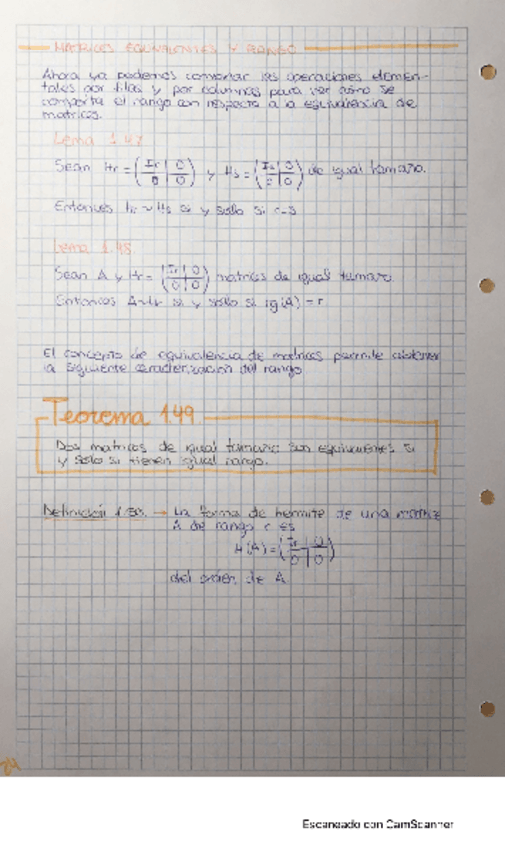 MATRICES EQUIVALENTES Y RANGO
Ahora ya podemos comentar las operaciones elemen-
tales por filas y por columnas para ver cómo se
comporta el rango con respecto a la equivalencia de
matrices.
Lema 1.47
Sean Hr = (Ir | 0 / 0 | 0) y Hs = (Is | 0 / 0 | 0) de igual tamaño.
Entonces Hr ~ Hs si y solo si r=s
Lema 1.48
Sean A y Hr = (Ir | 0 / 0 | 0) matrices de igual tamaño
Entonces A~Hr si y solo si rg(A) = r
El concepto de equivalencia de matrices permite obtener
la siguiente caracterización del rango
Teorema 1.49
Dos matrices de igual tamaño son equivalentes si
y solo si tienen igual rango.
Definición 1.50. → La forma de hermite de una matriz
A de rango r es
H(A) = (Ir | 0 / 0 | 0)
del orden de A
Escaneado con CamScanner